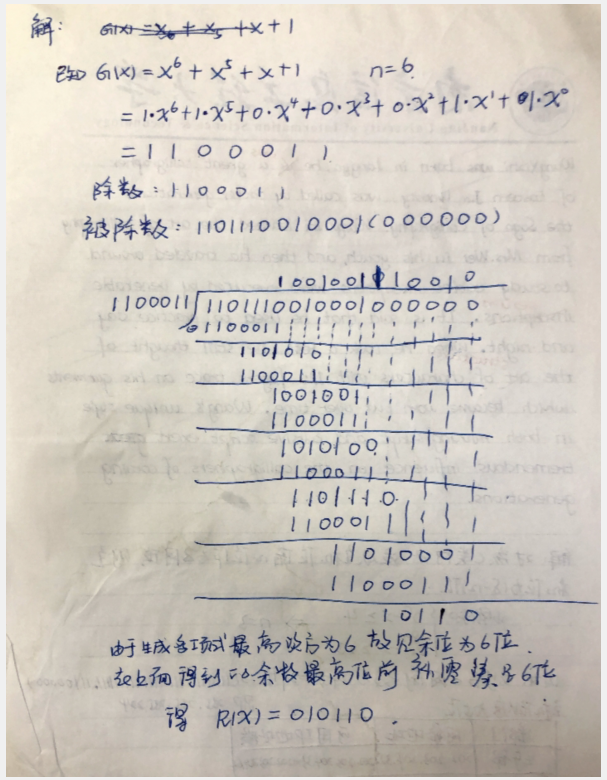 解: G(x)=x₆+x₅+x+1
已知 G(x)=x⁶+x⁵+x+1 n=6.
=1·x⁶+1·x⁵+0·x⁴+0·x³+0·x²+1·x¹+1·x⁰
=1100011
除数:1100011
被除数:1101110010001(000000)
1001001110010
1100011 1101110010001000000
1100011
1101010
1100011
1001001
1100011
1010100
1100011
1101110
1100011
1101000
1100011
10110
由于生成多项式最高次方为6 故冗余位为6位.
在上面得到的余数最高位前补零凑足6位
得 R(X)=010110.